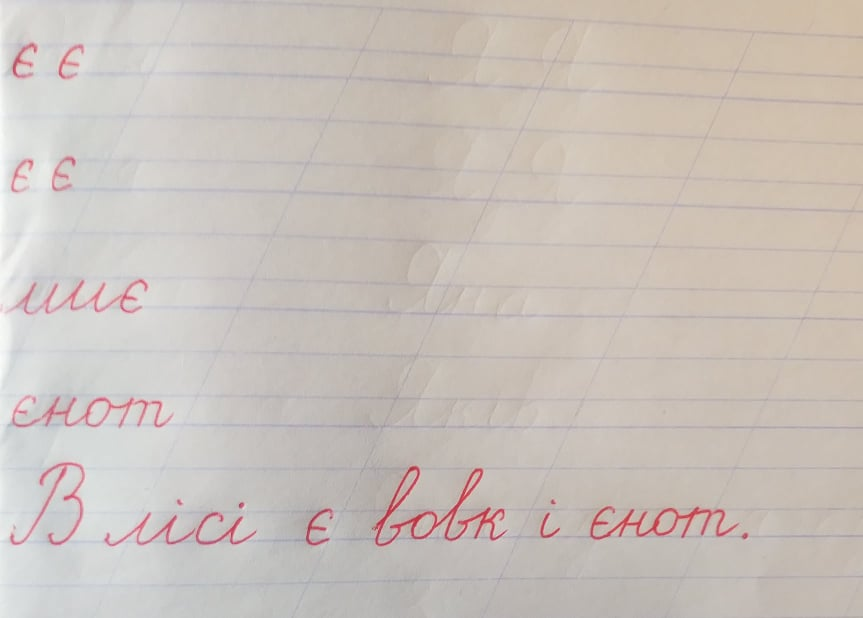 є є
є є
миє
єнот
В лісі є вовк і єнот.